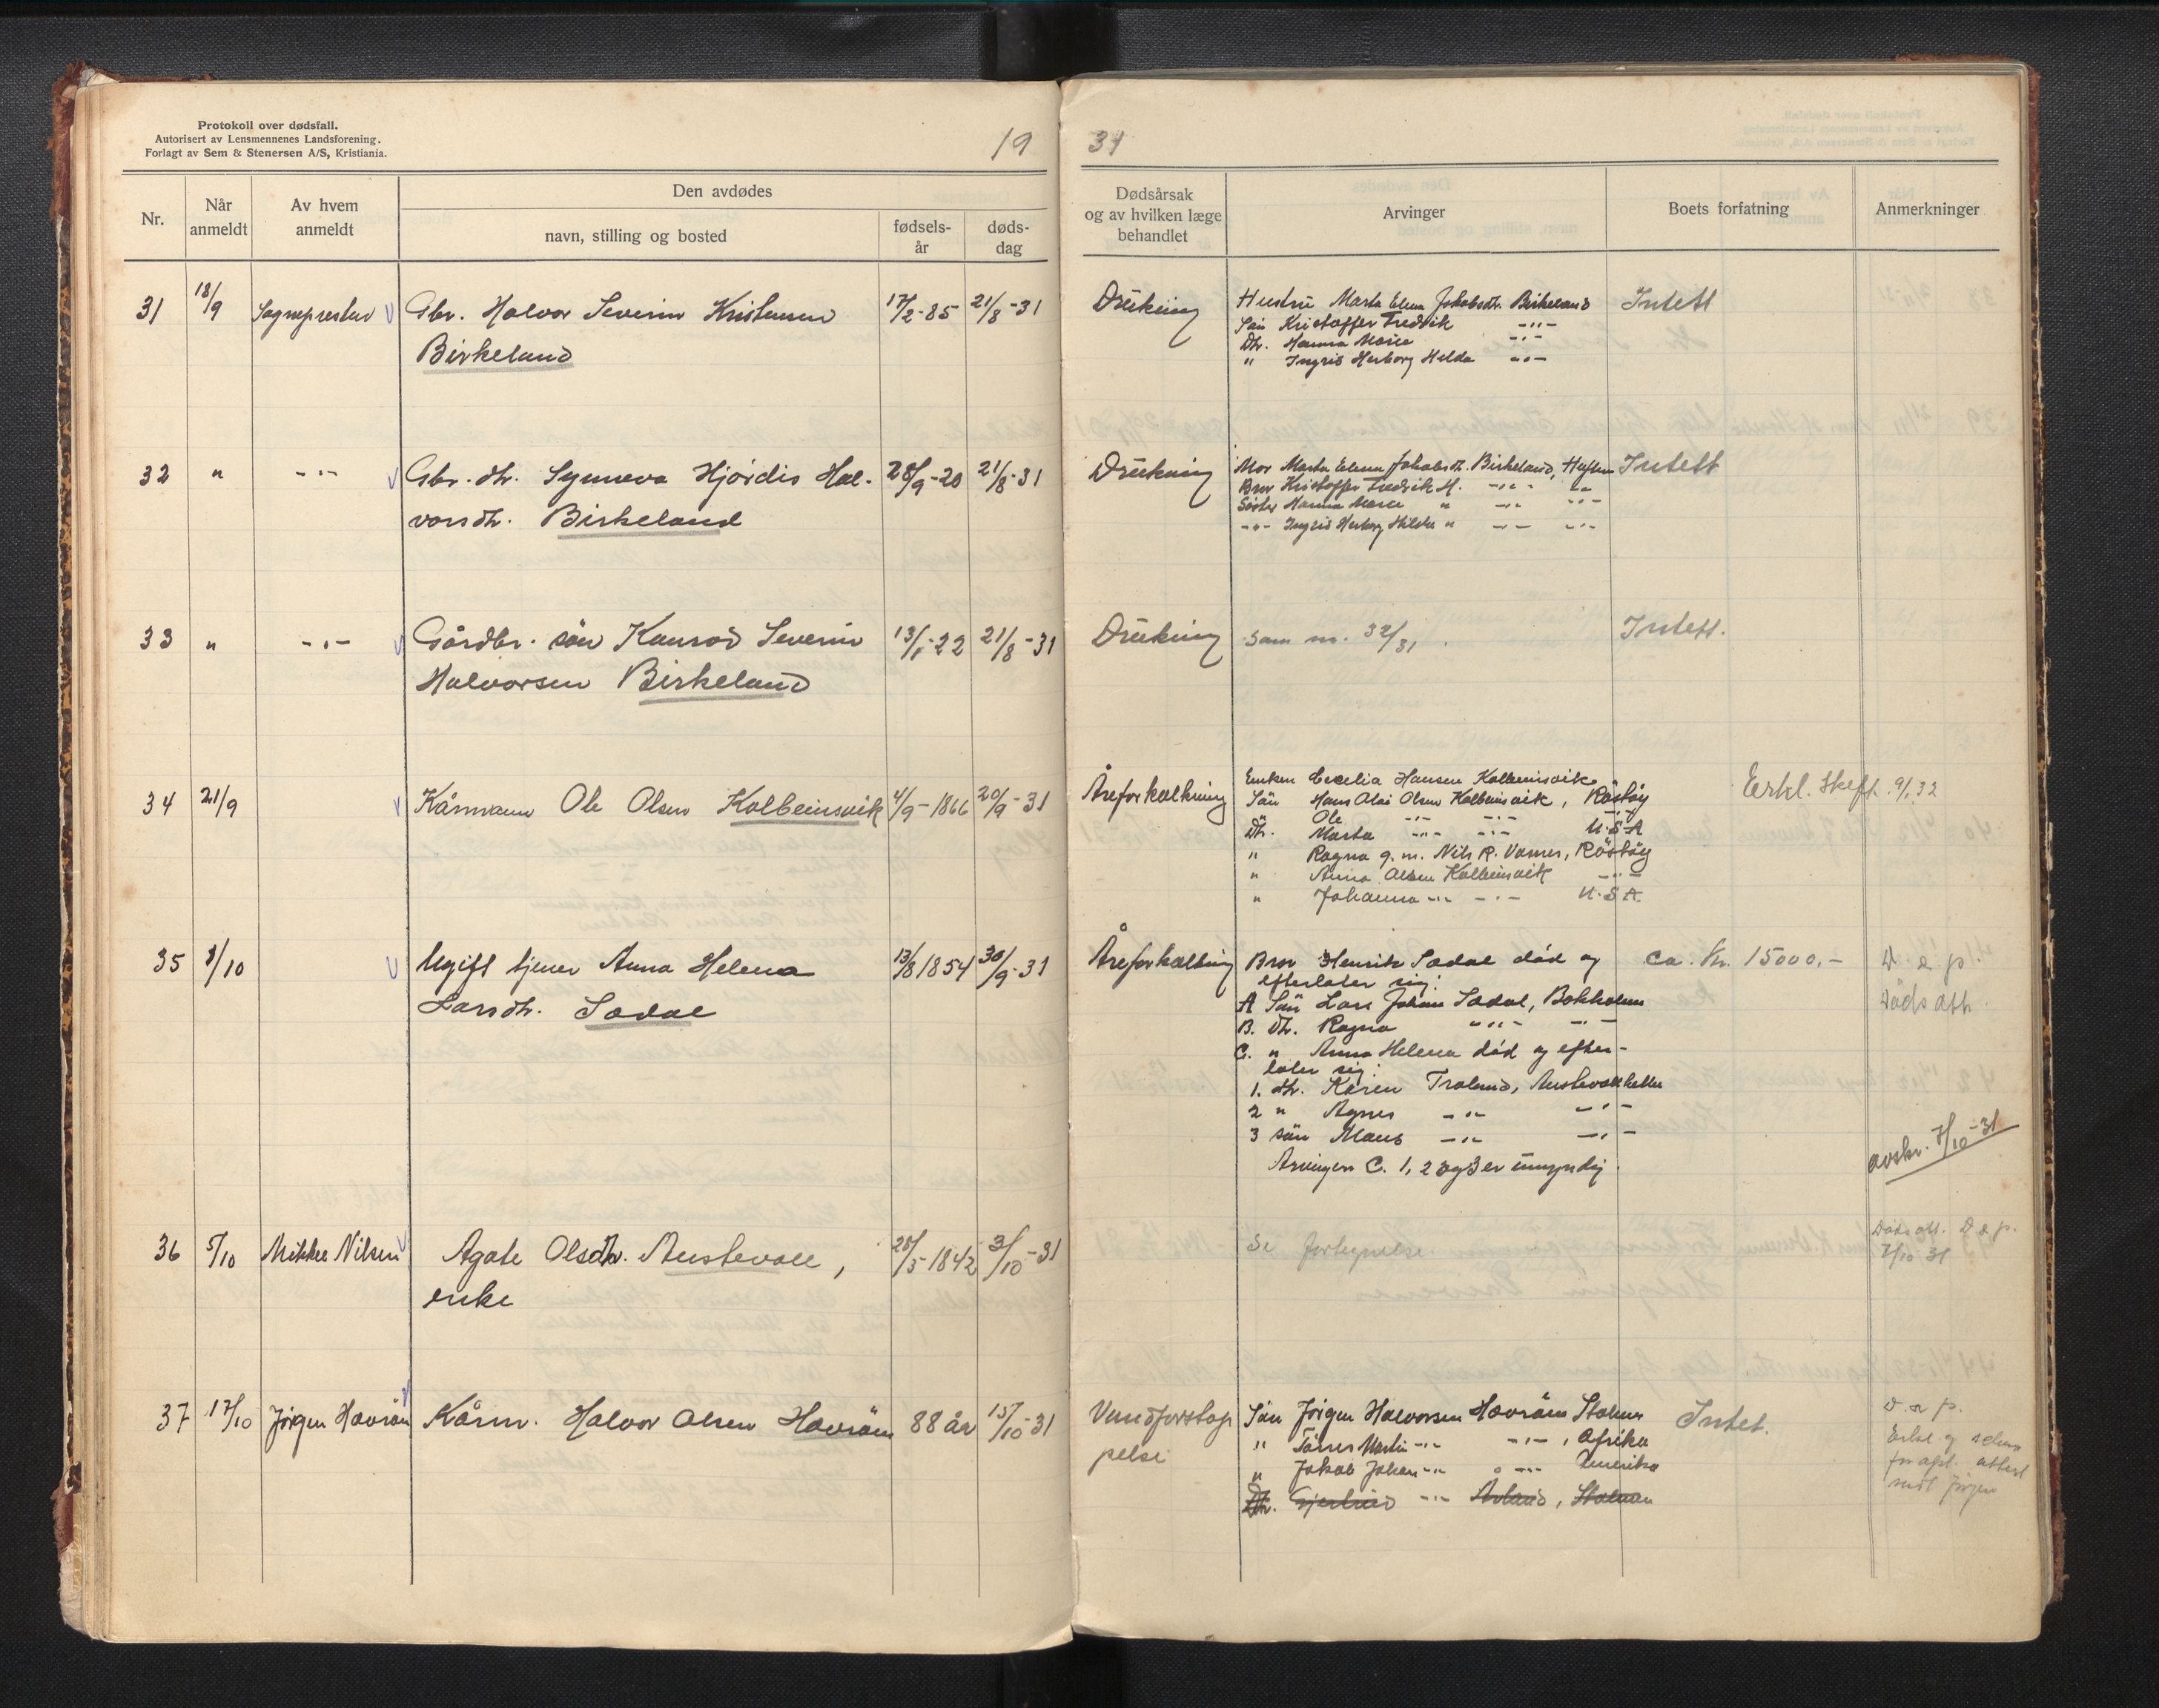 Protokoll over dødsfall.
Autorisert av Lensmennenes Landsforening.
Forlagt av Sem & Stenersen A/S, Kristiania.
19 31
Nr.
Når anmeldt
Av hvem anmeldt
Den avdødes
navn, stilling og bosted
fødsels-år
døds-dag
Dødsårsak og av hvilken læge behandlet
Arvinger
Boets forfatning
Anmerkninger
31 18/9 Sognepresten Gbr. Halvor Severin Kristensen 17/2-85 21/8-31 Drukning Hustru Marta Elena Jakobsdtr. Birkeland Intett
Birkeland
Sön Kristoffer Fredrik -"-
Dtr. Hanna Marie -"-
" Ingrid Herborg Hilda -"-
32 " -"- Gbr. dtr. Synneva Hjördis Hal- 28/9-20 21/8-31 Drukning Mor Marta Elena Jakobsdtr. Birkeland, Huftun Intett
vorsdtr. Birkeland
Bror Kristoffer Fredrik H. -"- -"-
Söster Hanna Marie " -"- -"-
-"- Ingrid Herborg Hilda " -"- -"-
33 " -"- Gårdbr. sön Konrad Severin 13/1-22 21/8-31 Drukning Som nr. 32/31. Intett.
Halvorsen Birkeland
34 21/9 Kårmann Ole Olsen Kolbeinsvik 4/9-1866 20/9-31 Åreforkalkning Enken Cecelia Hansen Kolbeinsvik Erkl. Skift. 9/1 32
Sön Hans Olai Olsen Kolbeinsvik, Röstöy
" Ole -"- -"- -"-
Dtr. Marta -"- -"- U.S.A
" Ragna g.m. Nils R. Vamnes, Röstöy
" Anna Olsen Kolbeinsvik -"-
" Johanna -"- -"- U.S.A.
35 3/10 Ugift tjener Anna Helena 13/8 1854 30/9-31 Åreforkalkning Bror Henrik Sadal död og ca. Kr. 15000,- D. a p.
Larsdtr. Sadal
efterlater sig:
A Sön Lars Johan Sadal, Bakholmen Dödsatt.
B. Dtr. Ragna -"- -"-
C. " Anna Helena död og efter-
later sig:
1. dtr. Karen Troland, Austevollhella
2 " Agnes -"- -"-
3 sön Mans -"- -"-
Arvingen C. 1, 2 og 3 er umyndig.
avskr. 7/10-31
36 5/10 Mikkel Nilsen Agate Olsdtr. Austevoll, 28/5-1842 3/10-31 Se fortegnelse Dödsatt. D a p.
enke 7/10 31
37 17/10 Jörgen Havröen Kårm. Halvor Olsen Havröen 88 år 15/10-31 Vannforstop Sön Jörgen Halvorsen Havröen Stolmen Intet. D. a p.
pelse
" Törres Martin -"- -"-, Afrika
" Jakob Johan -"- -"- Amerika
Dtr. Gjertrud -"- Årland, Stolmen
Erkl. og
attest
sendt Jörgen